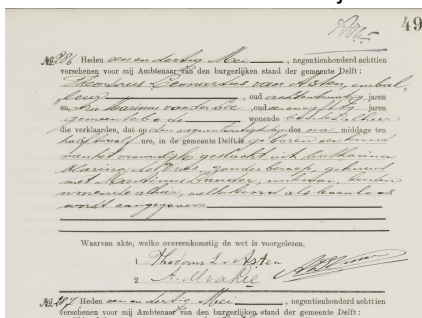 49
No 286 Heden een en dertig Mei, negentienhonderd achttien
verschenen voor mij Ambtenaar van den burgerlijken stand der gemeente Delft:
Theodorus Leonardus van Asten, embal-
leur, oud achtentwintig jaren
en Arie Marinus van der , oud jaren
gemeentebode wonende beiden alhier
die verklaarden, dat op den negen en twintigsten dezer des na middags ten
half twaalf ure, in de gemeente Delft is geboren een kind
van het vrouwelijk geslacht uit Catharina
de zonder beroep, gehuwd
met Martinus , beiden
wonende alhier, welk kind als levenloos
wordt aangegeven
Waarvan akte, welke overeenkomstig de wet is voorgelezen.
1 Thedorus L v Asten
2 A. M
No 287 Heden een en dertig Mei, negentienhonderd achttien
verschenen voor mij Ambtenaar van den burgerlijken stand der gemeente Delft: